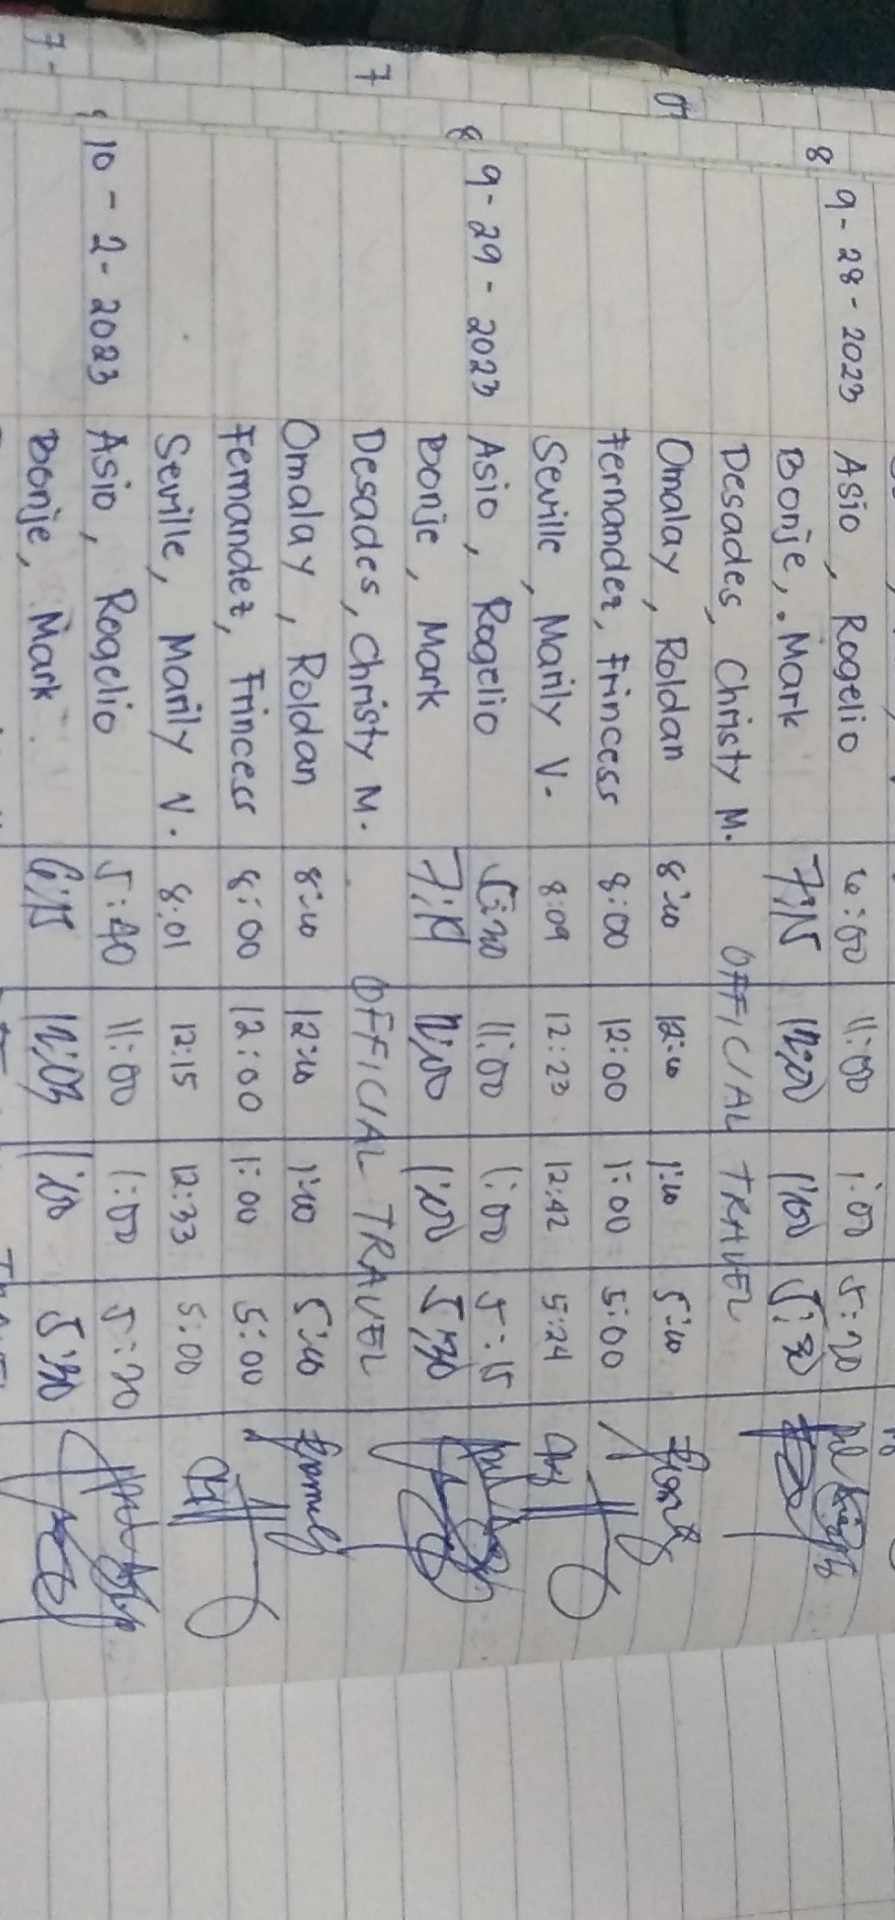 9-28-2023 Asio, Rogelio 6:00 11:00 1:00 5:20
Bonje, Mark 7:15 12:00 1:00 5:30
Desades, Christy M. OFFICIAL TRAVEL
Omalay, Roldan 8:00 12:00 1:00 5:00
Fernandez, Frincess 8:00 12:00 1:00 5:00
Seville, Marily V. 8:09 12:23 12:42 5:24
9-29-2023 Asio, Rogelio 11:00 1:00 5:15
Bonje, Mark 12:00 1:00 5:30
Desades, Christy M. OFFICIAL TRAVEL
Omalay, Roldan 8:00 12:00 1:00 5:00
Fernandez, Frincess 8:00 12:00 1:00 5:00
Seville, Marily V. 8:01 12:15 12:33 5:00
10-2-2023 Asio, Rogelio 5:40 11:00 1:00 5:20
Bonje, Mark 6:15 12:03 1:00 5:30